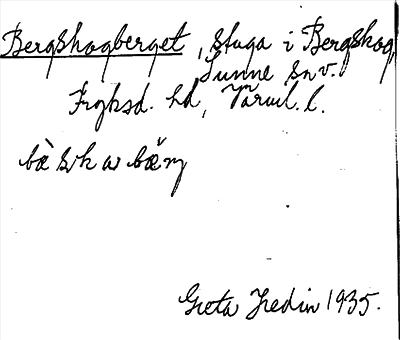 Bergskogberget, stuga i Bergskog,
Sunne sn v.
Fryksd. hd, Värml. l.
Greta Hedin 1935.